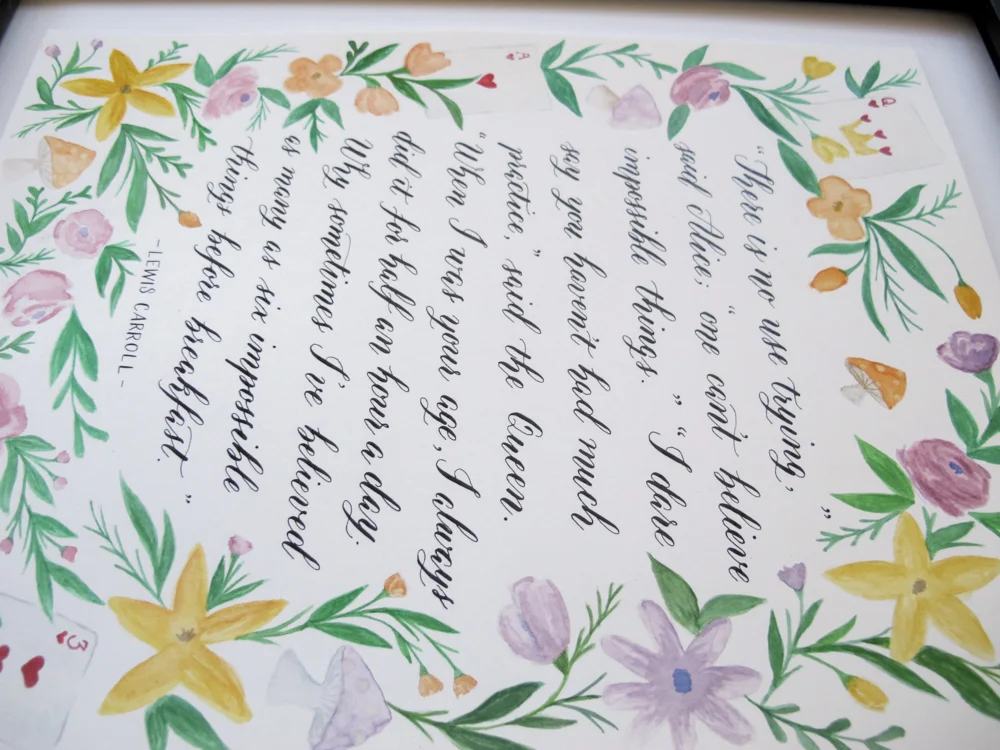 A
Q
“There is no use trying,”
said Alice; “one can't believe
impossible things.” “I dare
say you haven't had much
practice,” said the Queen.
“When I was your age, I always
did it for half an hour a day.
Why sometimes I've believed
as many as six impossible
things before breakfast.”
-LEWIS CARROLL-
3